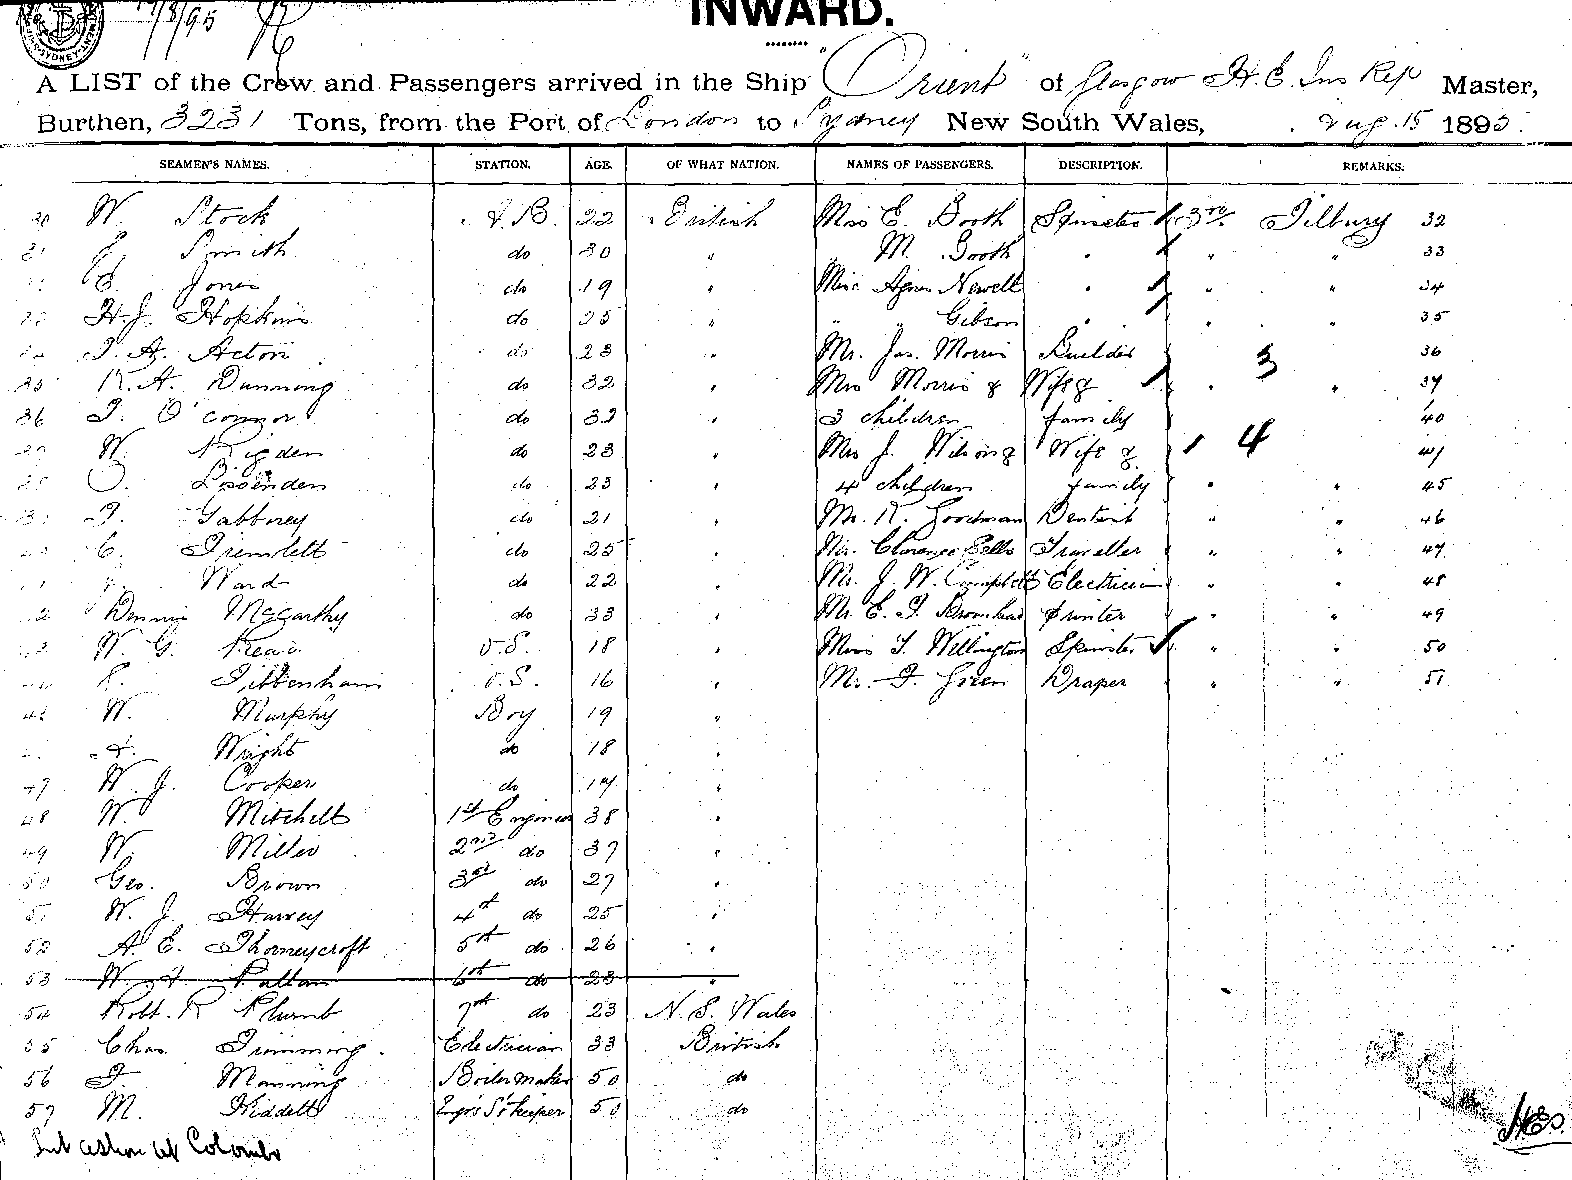 INWARD.
A LIST of the Crew and Passengers arrived in the Ship "Orient" of Glasgow H.E. Inskip Master,
Burthen, 3231 Tons, from the Port of London to Sydney New South Wales, Aug. 15 1895.
SEAMEN'S NAMES. STATION. AGE. OF WHAT NATION. NAMES OF PASSENGERS. DESCRIPTION. REMARKS.
30 W. Stock A.B. 22 British Miss E. Booth Spinster 3rd Tilbury 32
31 Smith do 30 " " M. Booth " " " 33
Jones do 19 " Miss Agnes Newell " " " 34
H.J. Hopkins do 25 " " " Gibson " " " 35
J. A. Acton do 23 " Mr. Jas. Morris Builder 3 36
35 R. A. Dunning do 32 " Mrs Morris & Wife & " " 37
36 J. O'Connor do 32 3 children family 40
W. Rigden do 23 " Mrs J. Wilson & Wife & 4 41
do 23 " 4 children family " " 45
J. Gabbney do 21 " Mr. R. Goodman Dentist " " 46
C. Tremlett do 25 " Mr. Clarence Sells Traveller " " 47
Ward do 22 " Mr. J. W. Campbell Electrician " " 48
Dennis McCarthy do 33 " Mr. E. J. Broomhead Printer " " 49
W. G. O.S. 18 " Miss T. Wellington Spinster " " 50
Tittenham O.S. 16 " Mr. F. Green Draper " " 51
W. Murphy Boy 19 "
Wright do 18 "
47 W. J. Cooper do 17 "
48 W. Mitchell 1st Engineer 38 "
49 W. Miller 2nd do 37 "
50 Geo. Brown 3rd do 27 "
51 W. J. Harvey 4th do 25 "
52 A. E. Thorneycroft 5th do 26 "
53 W. Pattan 6th do 23 "
54 Robt. R Plumb 7th do 23 N. S. Wales
55 Chas. Timming Electrician 33 British
56 J. Manning Boiler maker 50 do
57 M. Kiddell S'keeper 50 do
Put ashore at Colombo